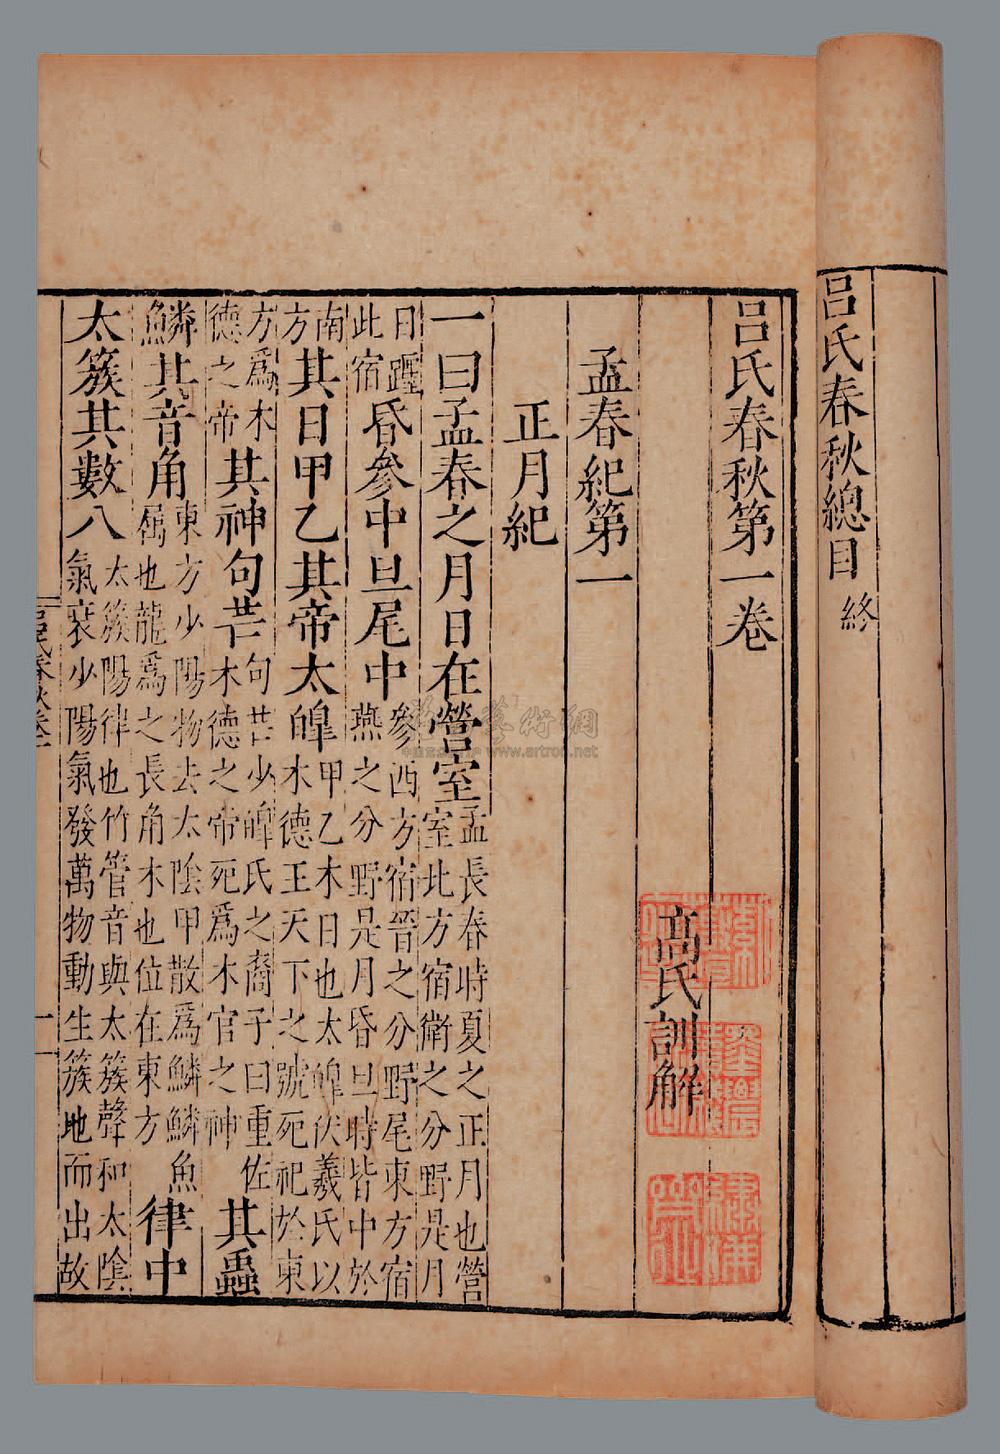 呂氏春秋總目 終
呂氏春秋第一卷
高氏訓解
孟春紀第一
正月紀
一曰孟春之月日在營室 孟長春時夏之正月也營室北方宿衛之分野是月
日躔此宿 昏參中旦尾中 參西方宿晉之分野尾東方宿燕之分野是月昏旦時皆中於
南方 其日甲乙其帝太皥 甲乙木日也太皥伏羲氏以木德王天下之號死祀於東
方爲木德之帝 其神句芒 句芒少皥氏之裔子曰重佐木德之帝死爲木官之神 其蟲
鱗其音角 東方少陽物去太陰甲散爲鱗鱗魚屬也龍爲之長角木也位在東方 律中
太簇其數八 太簇陽律也竹管音與太簇聲和太陰氣衰少陽氣發萬物動生簇地而出故
呂氏春秋卷一
一
www.artron.net